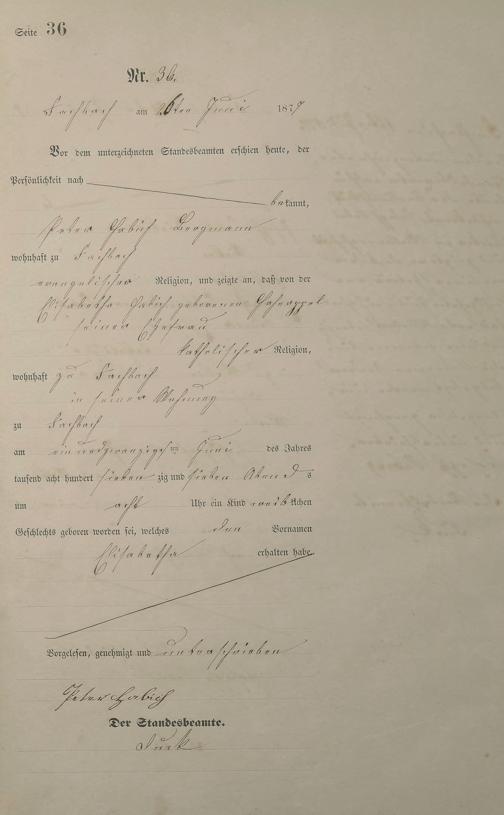 Seite 36
Nr. 36.
Fachbach am 26ten Juni 1877
Vor dem unterzeichneten Standesbeamten erschien heute, der
Persönlichkeit nach
bekannt,
Peter Habich Bergmann
wohnhaft zu Fachbach
evangelischer Religion, und zeigte an, daß von der
Elisabetha Habich geborenen
seiner Ehefrau
katholischer Religion,
wohnhaft zu Fachbach
in seiner Wohnung
zu Fachbach
am einundzwanzigsten Juni des Jahres
tausend acht hundert siebenzig und sieben Abends
um acht Uhr ein Kind weiblichen
Geschlechts geboren worden sei, welches den Vornamen
Elisabetha erhalten habe
Vorgelesen, genehmigt und unterschrieben
Peter Habich
Der Standesbeamte.